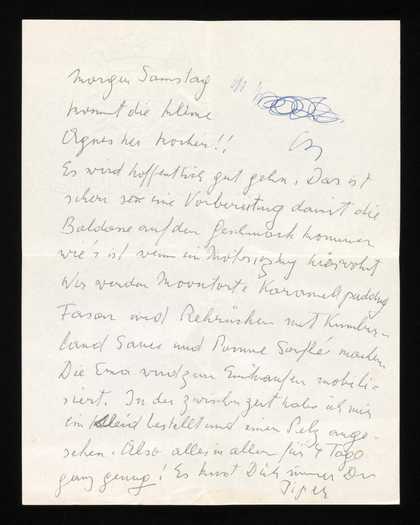 Morgen Samstag
kommt die kleine
Agnes her kochen!!
Es wird hoffentlich gut gehn. Das ist
schon eine Vorbereitung damit die
auf den Geschmack kommen
wie's ist wenn ein hier wohnt
Wir werden Moontorte Karamellpudding
Fasan und Rehrücken mit Kumber-
land Sauce und Pomme Souflé machen.
Die Ema wird zum Einkaufen mobili-
siert. In der zwischenzeit habe ich mir
ein Kleid bestellt und einen Pelz ange-
sehen. Also alles in allem für 4 Tage
ganz genug! Es küsst Dich immer Dein
Tiger